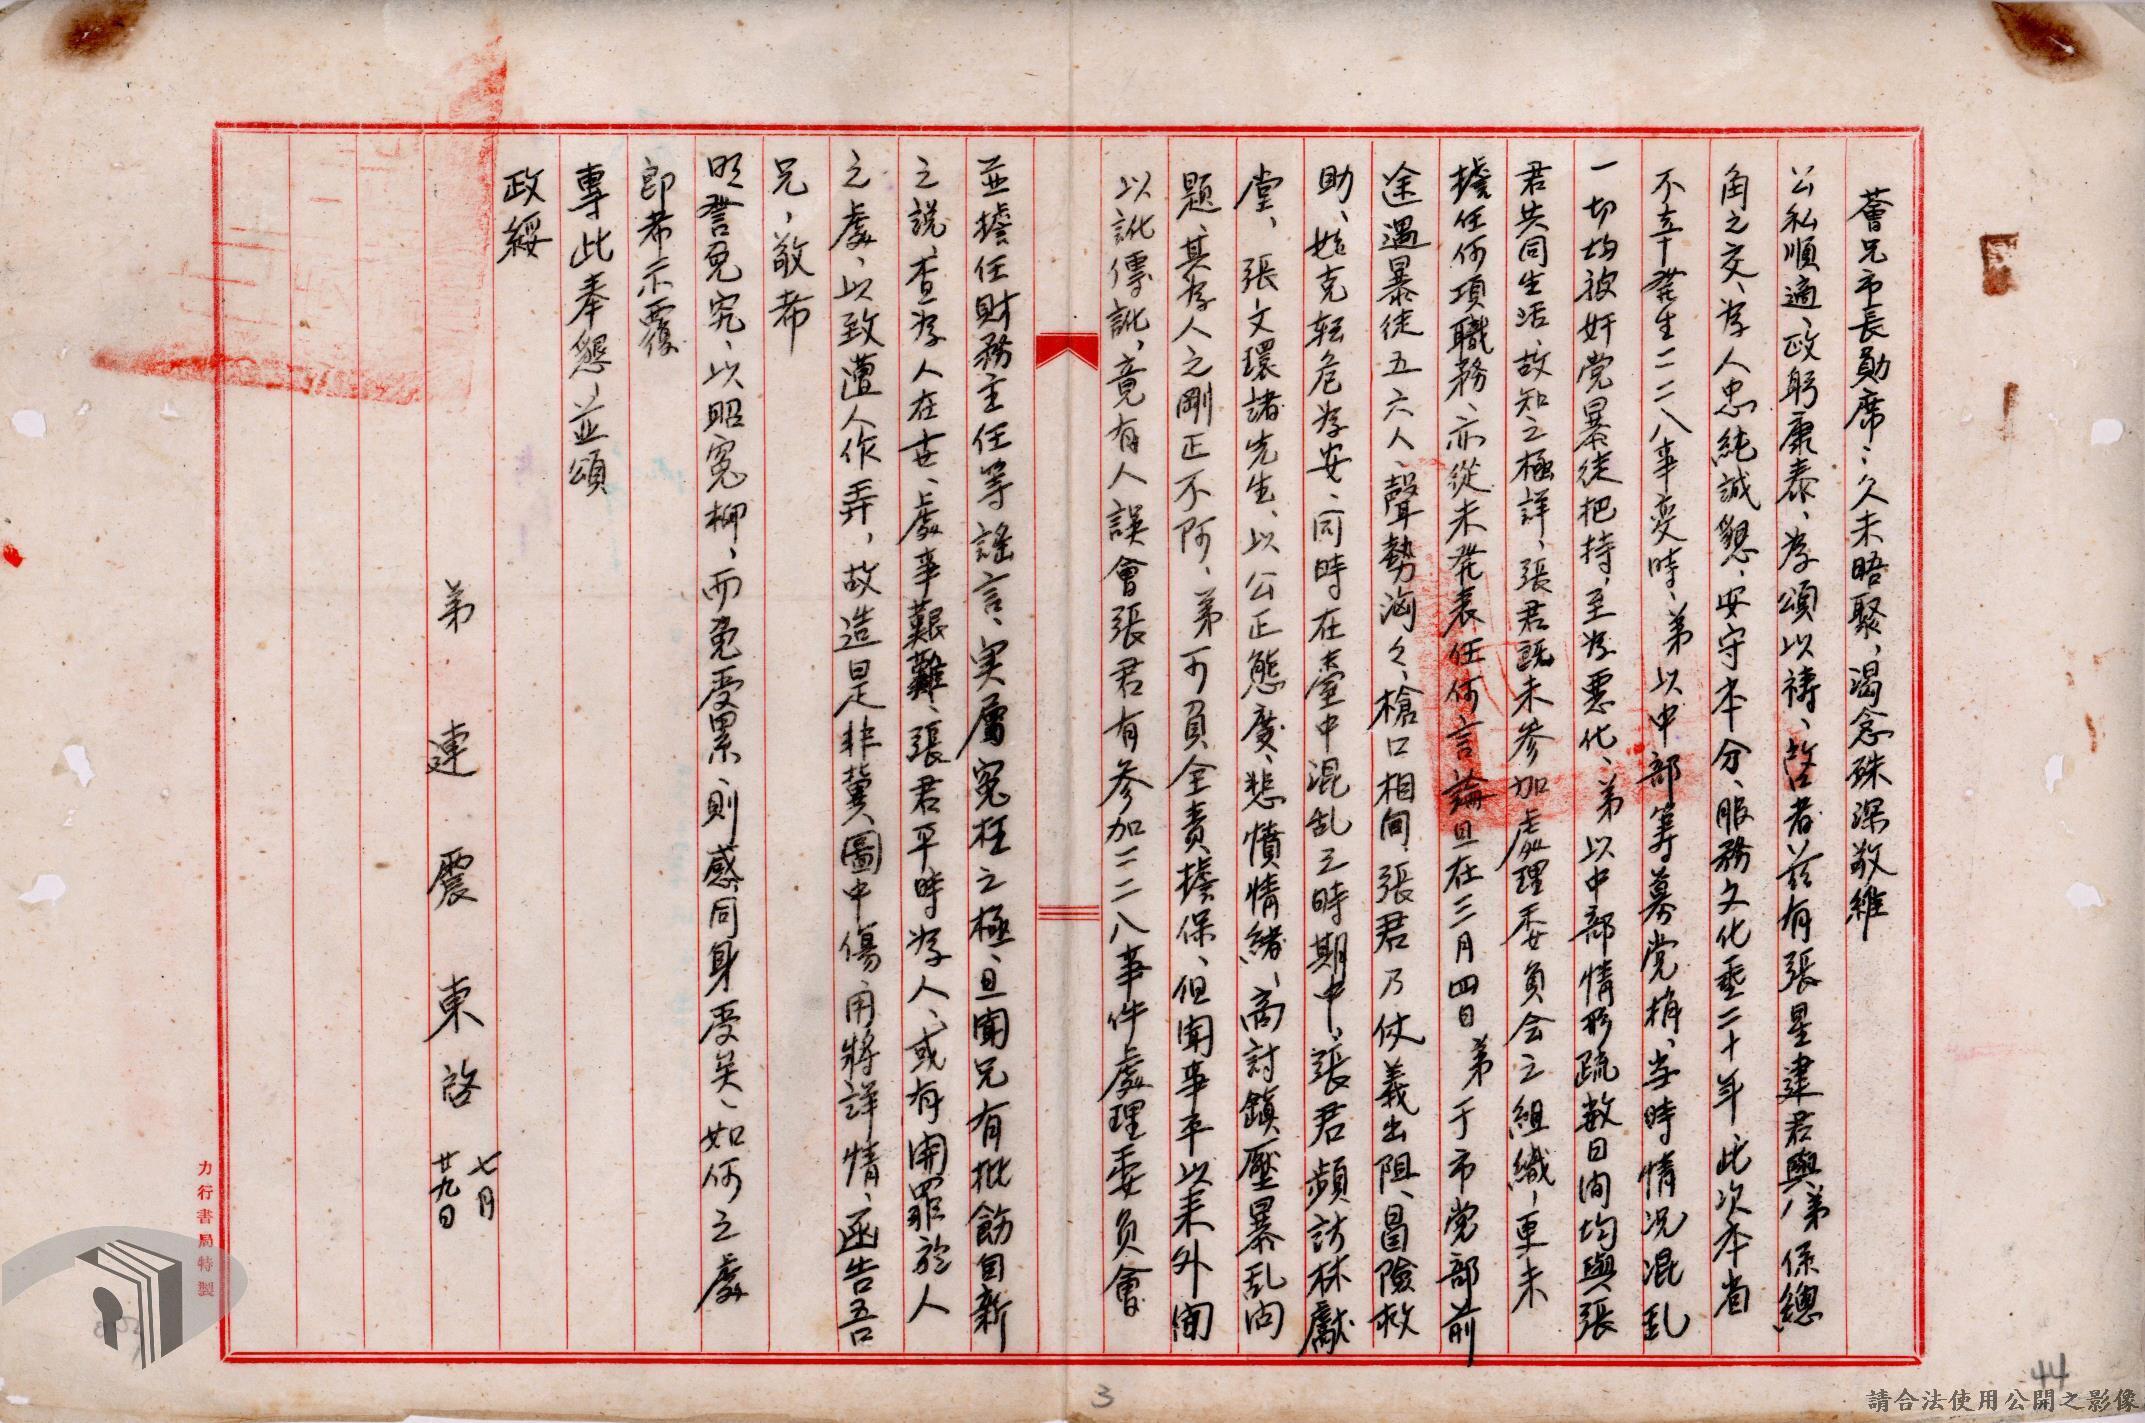 薈兄市長勛席：久未晤聚，渴念殊深敬維
公私順適、政躬康泰、為頌以禱、啓者茲有張星建君與弟係總
角之交、為人忠純誠懇、安守本分、服務文化垂二十年、此次本省
不幸發生二二八事变時、弟以中部筹募党捐、当時情况混乱
一切均被奸党暴徒把持、至為悪化、弟以中部情形疏数日间均與張
君共同生活、故知之極詳、張君既未參加處理委員会之組織，更未
擔任何項職務、亦從未発表任何言論且在三月四日 弟于市党部前
途遇暴徒五六人、聲勢洶々、槍口相向、張君乃仗義出阻、冒險救
助、始克轉危為安、同時在臺中混乱之時期中、張君頻訪林獻
堂、張文環諸先生、以公正態度、悲憤情緒、商討鎮壓暴乱问
題、其為人之剛正不阿、弟可負全責擔保、但聞事平以来外间
以訛傳訛，竟有人誤會張君有參加二二八事件處理委員會
並擔任財務主任等謠言、实屬冤枉之極、且聞兄有批飭自新
之説、查為人在世、處事艱難、張君平時為人、或有開罪於人
之處、以致遭人作弄，故造是非冀圖中傷、用將詳情、函告吾
兄，敬希
明詧免究、以昭冤抑、而免受累、則感同身受矣、如何之處
即希示覆
專此奉懇、並頌
政綏
弟 連 震 東 啓 七月廿九日
力行書局特製
3
44
請合法使用公開之影像